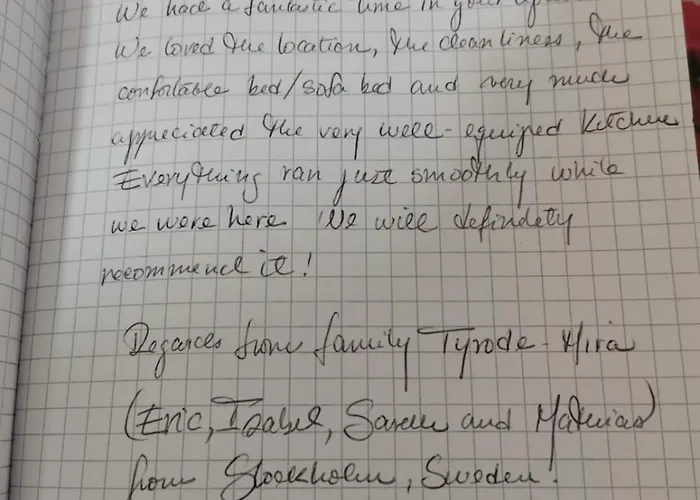 We have a fantastic time in your
We loved the location, the cleanliness, the
confortable bed/sofa bed and very much
appreciated the very well-equiped kitchen
Everything ran just smoothly while
we were here. We will defindety
recommend it!
Regards from family Tyrode-Mira
(Eric, Izabel, Sarah and Matias)
from Stockholm, Sweden!